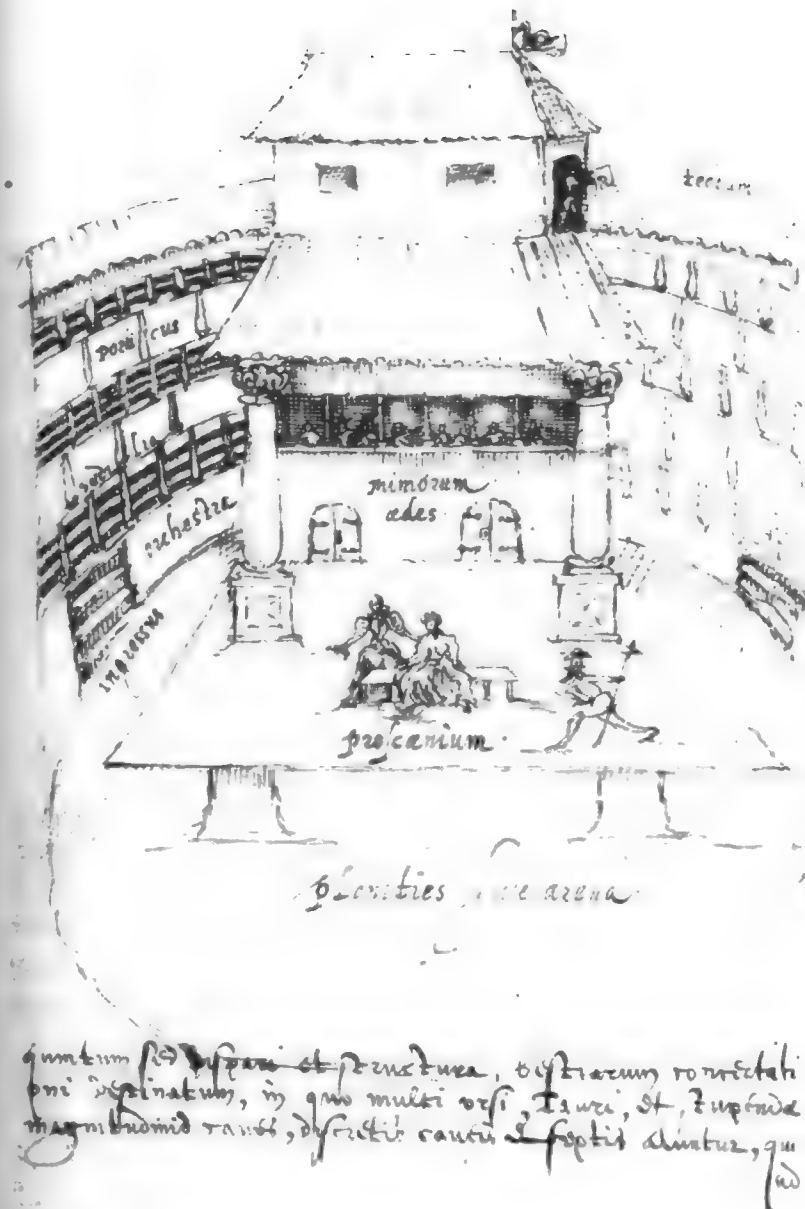 tectum
porticus
sedilia
orchestra
mimorum
ædes
ingressus
proscænium
planities sive arena
quintum sed dispari et structura, bestiarum concertati
oni destinatum, in quo multi ursi, Tauri, et, stupendæ
magnitudinis canes, discretis caueis & septis aluntur, qui
ad